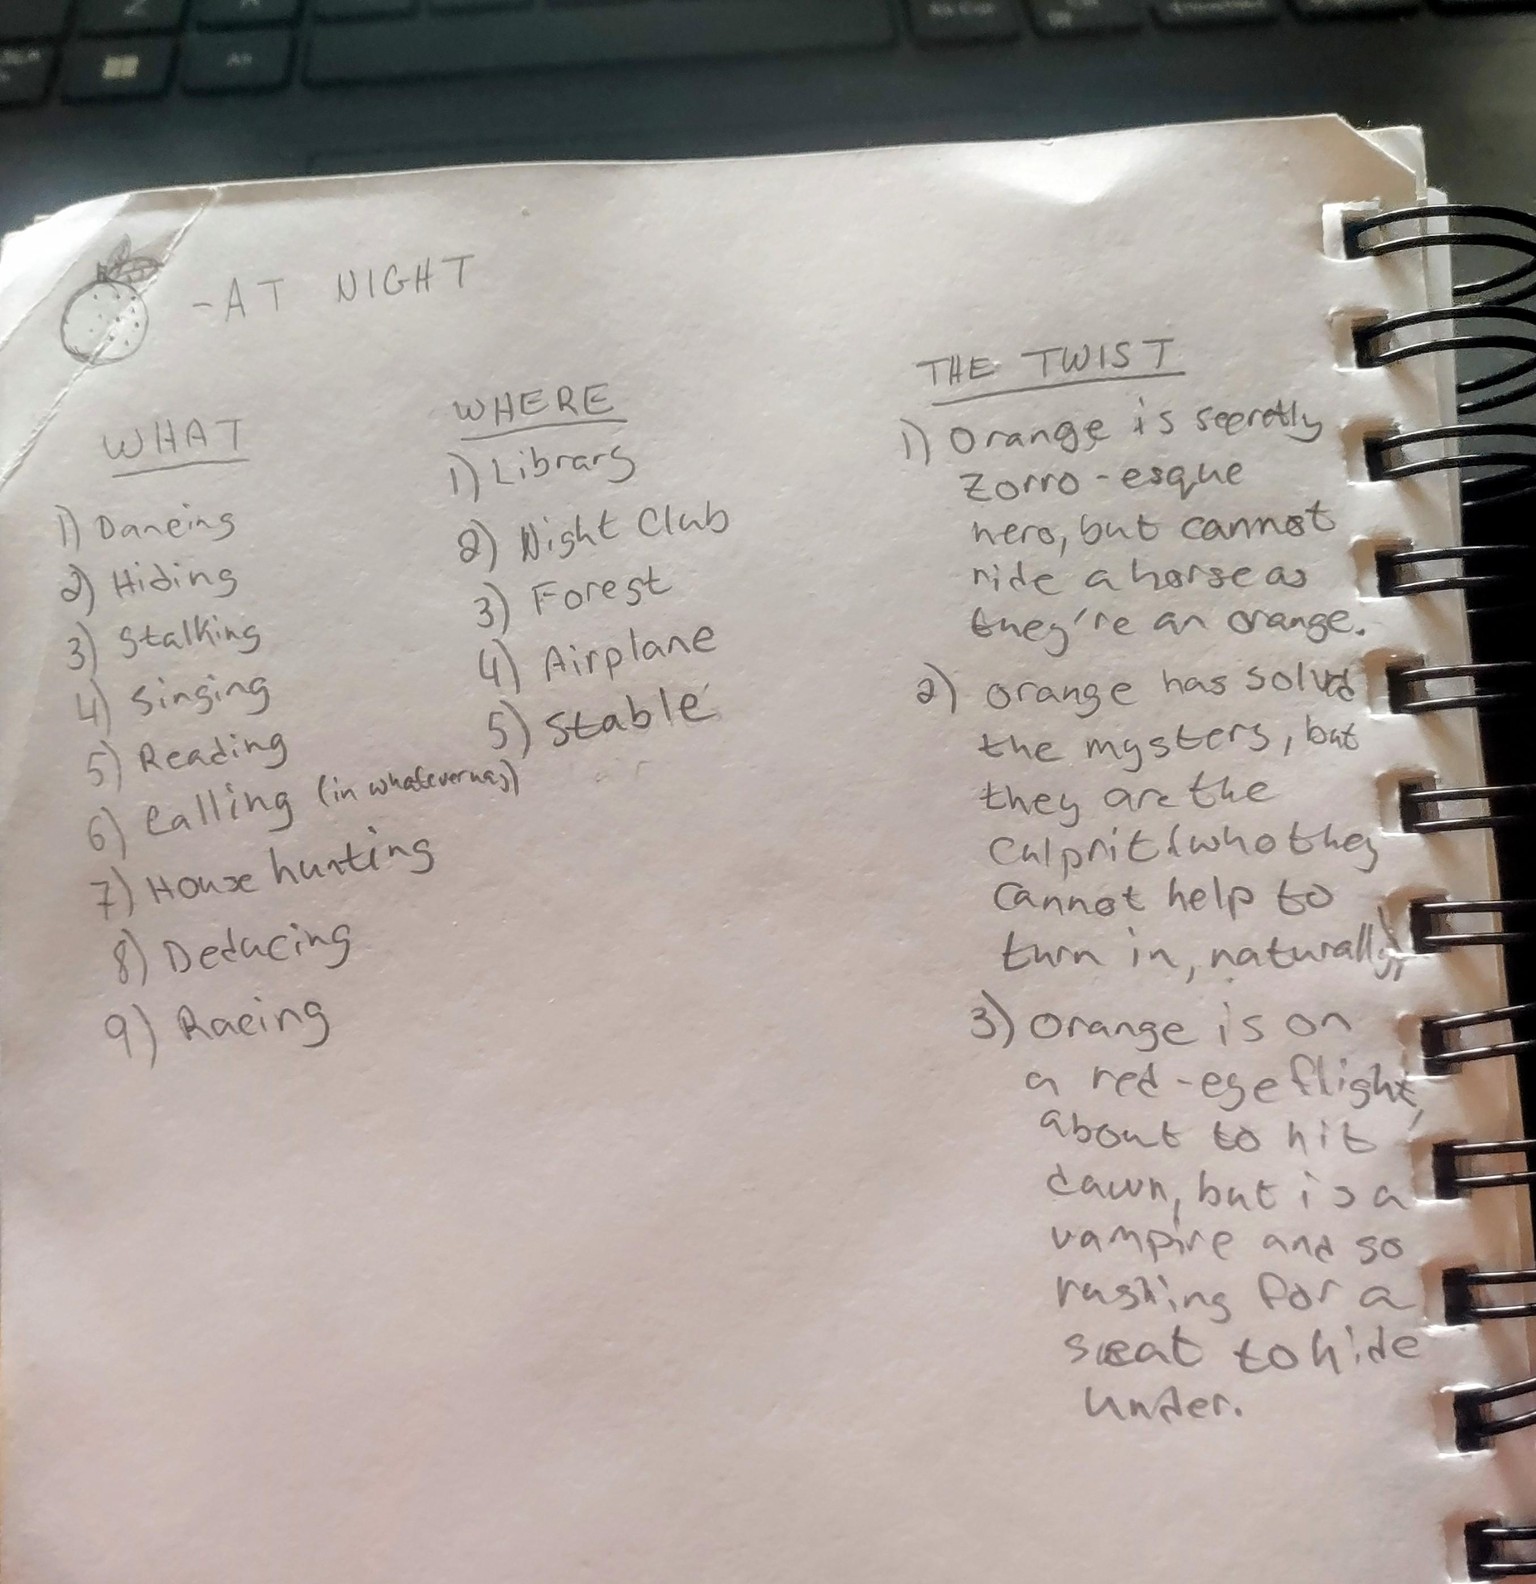 -AT NIGHT
WHAT
1) Dancing
2) Hiding
3) Stalking
4) Singing
5) Reading
6) Calling (in whatever way)
7) House hunting
8) Deducing
9) Racing
WHERE
1) Library
2) Night Club
3) Forest
4) Airplane
5) Stable
THE TWIST
1) Orange is secretly
Zorro-esque
hero, but cannot
ride a horse as
they're an orange.
2) Orange has solved
the mystery, but
they are the
culprit (who they
cannot help to
turn in, naturally)
3) Orange is on
a red-eye flight,
about to hit
dawn, but is a
vampire and so
rushing for a
seat to hide
under.